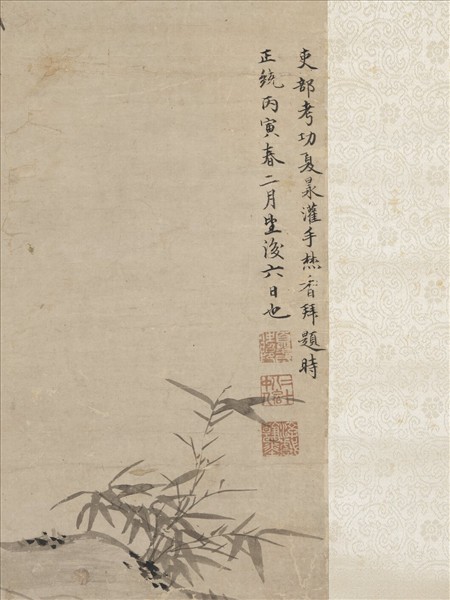 吏部考功夏㫤灌手焚香拜題時
正統丙寅春二月望後六日也